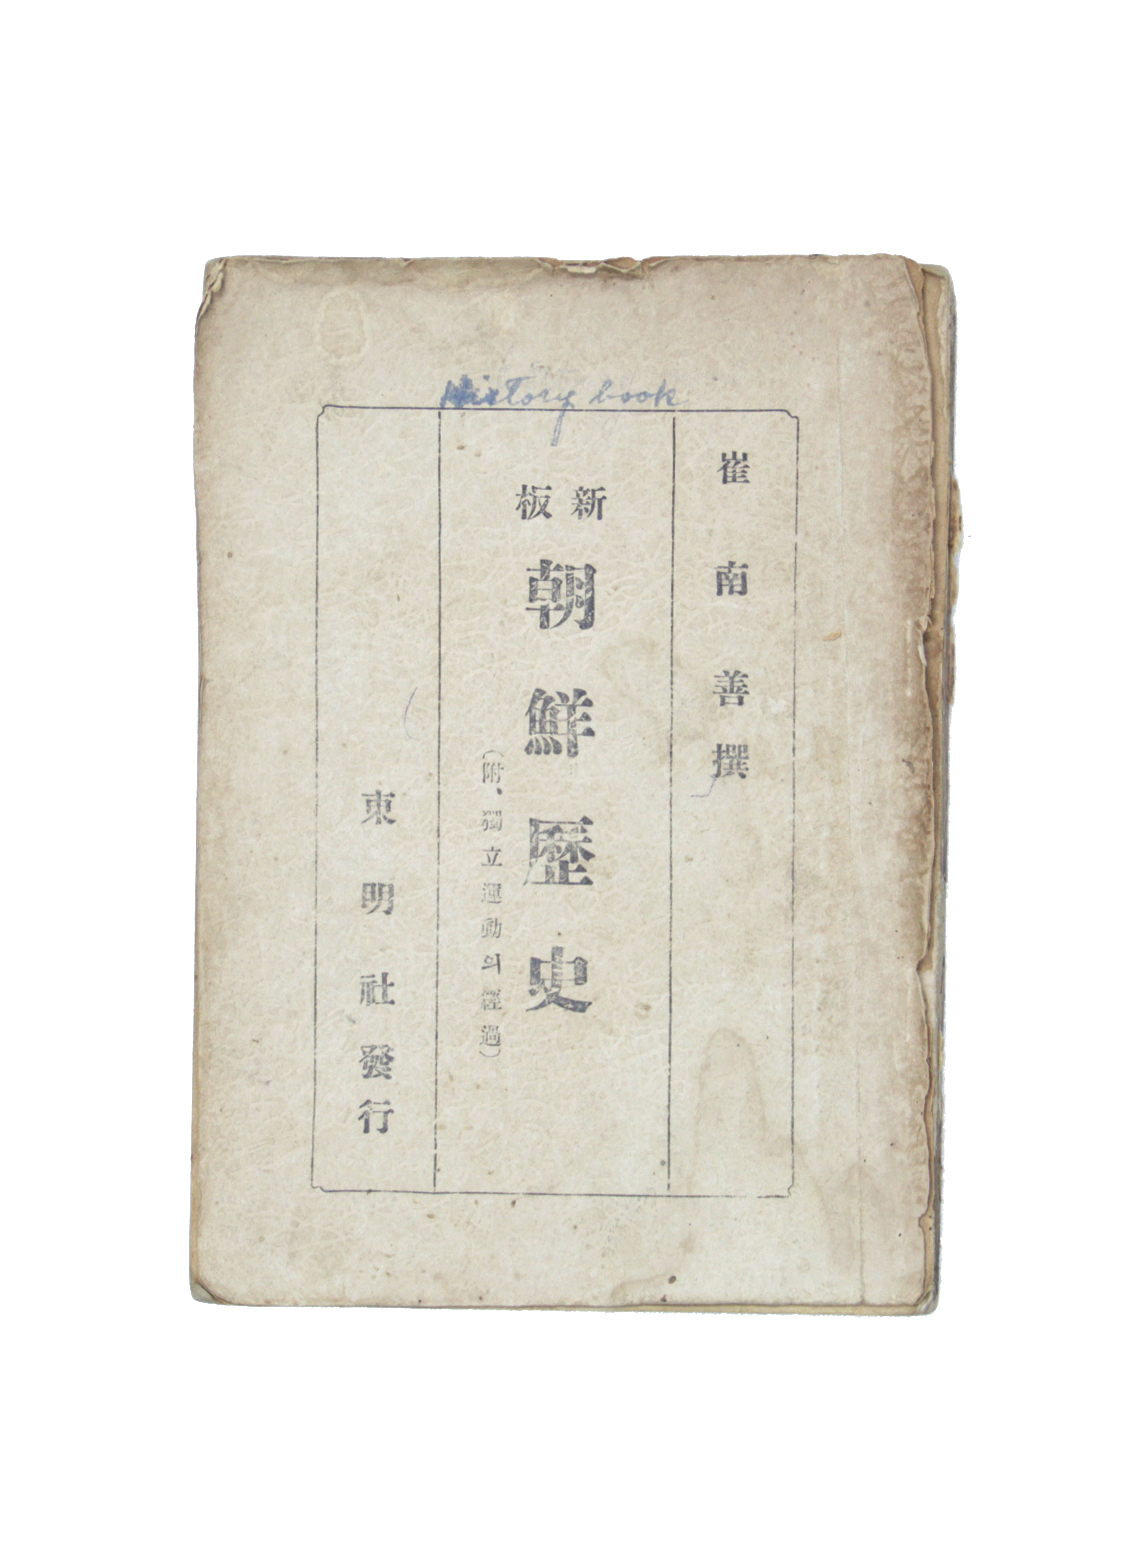 History book
崔南善撰
新板
朝鮮歷史
(附、獨立運動의經過)
東明社發行